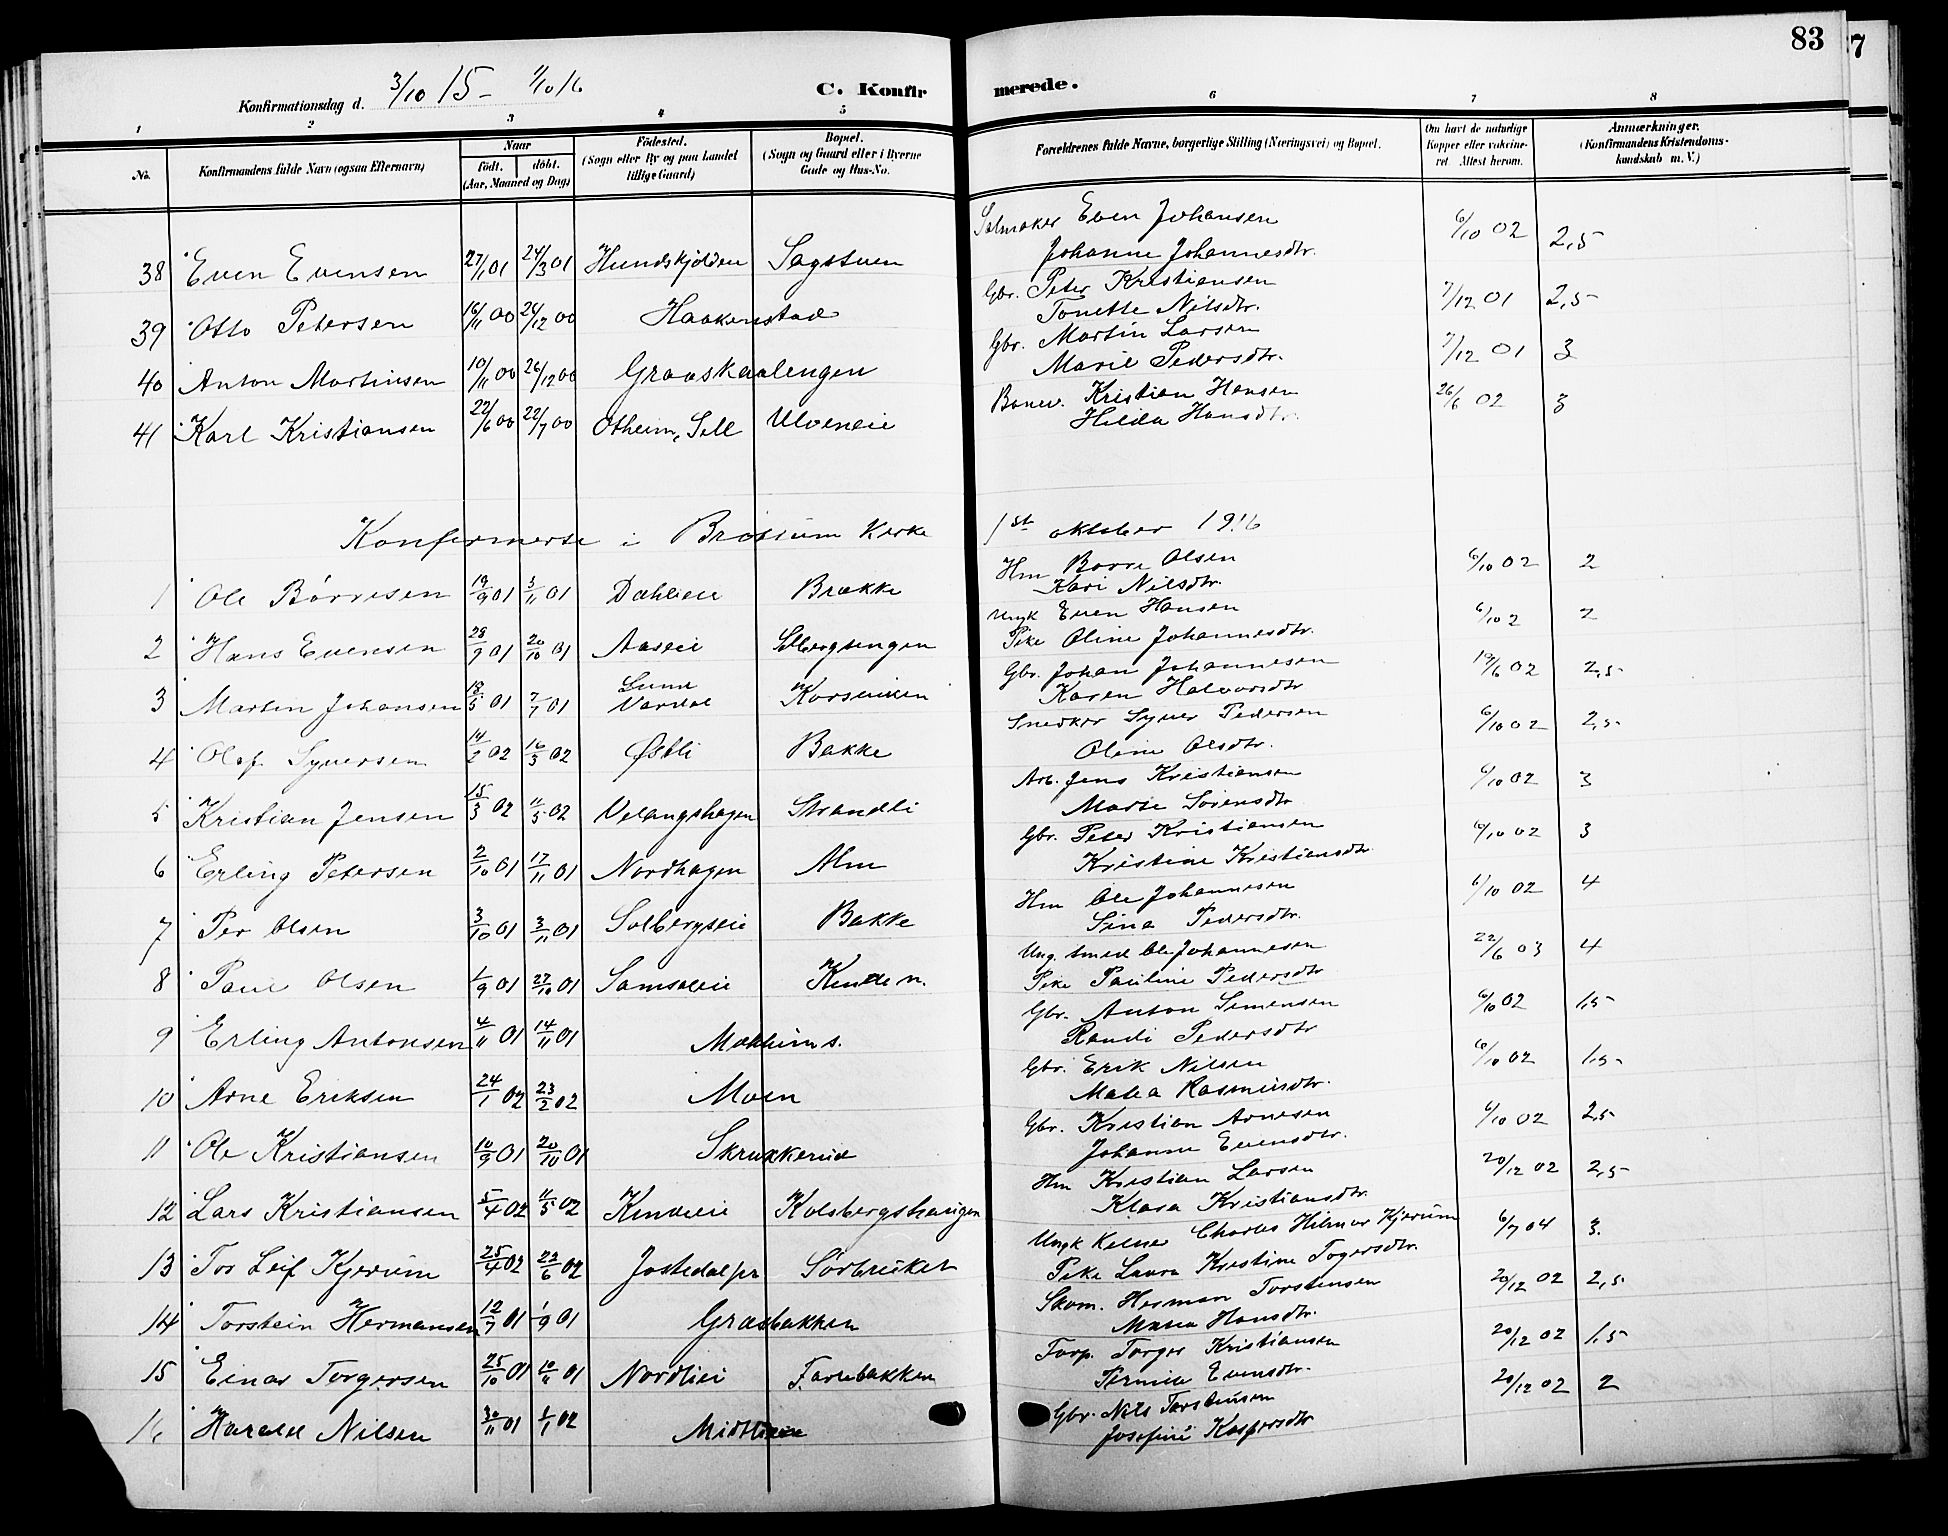 83
7
Konfirmationsdag d. 3/10 15 - 1/10 16
C. Konfirmerede.
1 2 3 4 5 6 7 8
No. Konfirmandens fulde Navn (ogsaa Efternavn) Naar födt. döbt. (Aar, Maaned og Dag) Födested. (Sogn eller By og paa Landet tillige Gaard) Bopæl. (Sogn og Gaard eller i Byerne Gade og Hus-No. Forældrenes fulde Navne, borgerlige Stilling (Næringsvei) og Bopæl. Om havt de naturlige Kopper eller vakcineret. Attest herom. Anmærkninger. (Konfirmandens Kristendomskundskab m. V.)
38 Even Evensen 27/1 01 24/3 01 Hundskjolden Sagstuen Salmaker Even Johansen 6/10 02 2,5
Johanne Johannesdtr.
39 Otto Petersen 16/11 00 26/12 00 Haakenstad Gbr. Peter Kristiansen 7/12 01 2,5
Tonette Nilsdtr.
40 Anton Martinsen 10/11 00 26/12 00 Graaskaalengen Gbr. Martin Larsen 7/12 01 3
Marie Pedersdtr.
41 Karl Kristiansen 22/6 00 22/7 00 Otheim, Sell Ulveneie Banev. Kristian Hansen 26/6 02 3
Hilda Hansdtr.
Konfirmerte i Brøttum Kirke 1st oktober 1916
1 Ole Børresen 19/9 01 3/11 01 Dæhlieie Brække Hm Borre Olsen 6/10 02 2
Kari Nilsdtr.
2 Hans Evensen 28/9 01 20/10 01 Aaseie Solbergsengen Ungk Even Hansen 6/10 2 2
Pike Oline Johannesdtr.
3 Martin Johansen 18/5 01 7/7 01 Lund Vardal Korsveien Gbr. Johan Johannesen 19/6 02 2,5
Karen Halvorsdtr
4 Olaf Syversen 14/2 02 16/3 02 Østli Bakke Snedker Syver Pedersen 6/10 02 2,5
Oline Olsdtr.
5 Kristian Jensen 15/3 02 11/5 02 Velangshagen Strandli Arb. Jens Kristiansen 6/10 02 3
Marie Sørensdtr
6 Erling Petersen 2/10 01 17/11 01 Nordhagen Alm Gbr. Peter Kristiansen 6/10 02 3
Kristine Kristiansdtr.
7 Per Olsen 3/10 01 3/11 01 Solbergseie Bakke Hm Ole Johannesen 6/10 02 4
Sina Pedersdtr.
8 Paul Olsen 1/9 01 27/10 01 Samsaleie Kinde n. Ung. smed Ole Johannesen 22/6 03 4
Pike Pauline Pedersdtr
9 Erling Antonsen 4/11 01 14/11 01 Moltheim s. Gbr. Anton Simensen 6/10 02 1,5
Randi Pedersdtr
10 Arne Eriksen 24/1 02 23/2 02 Moen Gbr. Erik Nilsen 6/10 02 1,5
Malea Rasmusdtr.
11 Ole Kristiansen 10/9 01 20/10 01 Skrukkerud Gbr. Kristian Arnesen 6/10 02 2,5
Johanne Evensdtr.
12 Lars Kristiansen 5/4 02 11/5 02 Kindeie Kolsbergshaugen Hm Kristian Larsen 20/12 02 2,5
Klara Kristiansdtr.
13 Tor Leif Kjerum 25/4 02 22/6 02 Jostedal pr Sørbruket Ungk Kelner Charles Hilmar Kjerum 6/7 04 3.
Pike Laura Kristine Togersdtr.
14 Torstein Hermansen 12/7 01 1/9 01 Græsbakken Skom. Herman Torstensen 20/12 02 2,5
Matea Hansdtr.
15 Einar Torgersen 25/10 01 10/11 01 Nordliei Farebakken Torp. Torger Kristiansen 20/12 02 1,5
Pernila Evensdtr.
16 Harald Nilsen 30/11 01 1/1 02 Midtlien Gbr. Nils Torstensen 20/12 02 2
Josefine Kaspersdtr